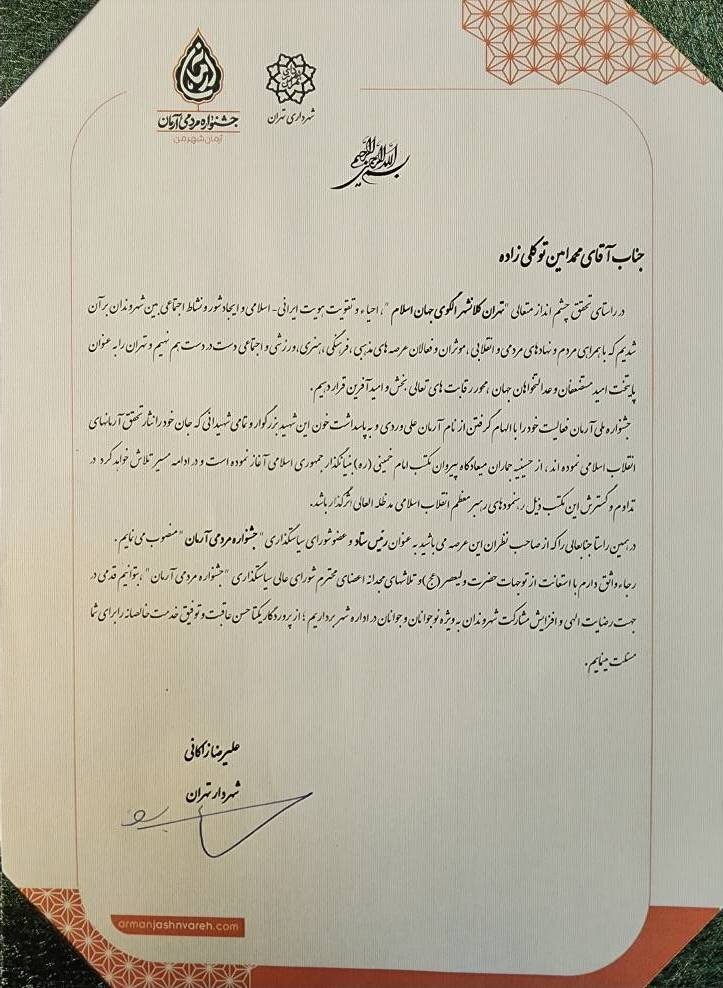 آرمان
جشنواره مردمی آرمان
آرمان شهر من
شهرداری تهران
بسم الله الرحمن الرحیم
جناب آقای محمدامین توکلی زاده
در راستای تحقق چشم انداز متعالی "تهران کلانشهر الگوی جهان اسلام"، احیاء و تقویت هویت ایرانی-اسلامی و ایجاد شور و نشاط اجتماعی بین شهروندان بر آن
شدیم که با همراهی مردم و نهادهای مردمی و انقلابی، موثران و فعالان عرصه های مذهبی، فرهنگی، هنری، ورزشی و اجتماعی دست در دست هم نهیم و تهران را به عنوان
پایتخت امید مستضعفان و عدالتخواهان جهان، محور رقابت های تعالی بخش و امیدآفرین قرار دهیم.
جشنواره ملی آرمان فعالیت خود را با الهام گرفتن از نام آرمان علی وردی و به پاسداشت خون این شهید بزرگوار و تمامی شهیدانی که جان خود را نثار تحقق آرمانهای
انقلاب اسلامی نموده اند، از حسینیه جماران میعادگاه پیروان مکتب امام خمینی (ره) بنیانگذار جمهوری اسلامی آغاز نموده است و در ادامه مسیر تلاش خواهد کرد در
تداوم و گسترش این مکتب ذیل رهنمودهای رهبر معظم انقلاب اسلامی مدظله العالی اثرگذار باشد.
در همین راستا جنابعالی را که از صاحب نظران این عرصه می باشید به عنوان رئیس ستاد و عضو شورای سیاستگذاری "جشنواره مردمی آرمان" منصوب می نمایم.
رجاء واثق دارم با استعانت از توجهات حضرت ولیعصر (عج) و تلاشهای مجدانه اعضای محترم شورای عالی سیاستگذاری "جشنواره مردمی آرمان"، بتوانیم قدمی در
جهت رضایت الهی و افزایش مشارکت شهروندان به ویژه نوجوانان و جوانان در اداره شهر برداریم؛ از پروردگار یکتا حسن عاقبت و توفیق خدمت خالصانه را برای شما
مسئلت می نمایم.
علیرضا زاکانی
شهردار تهران
armanjashnvareh.com